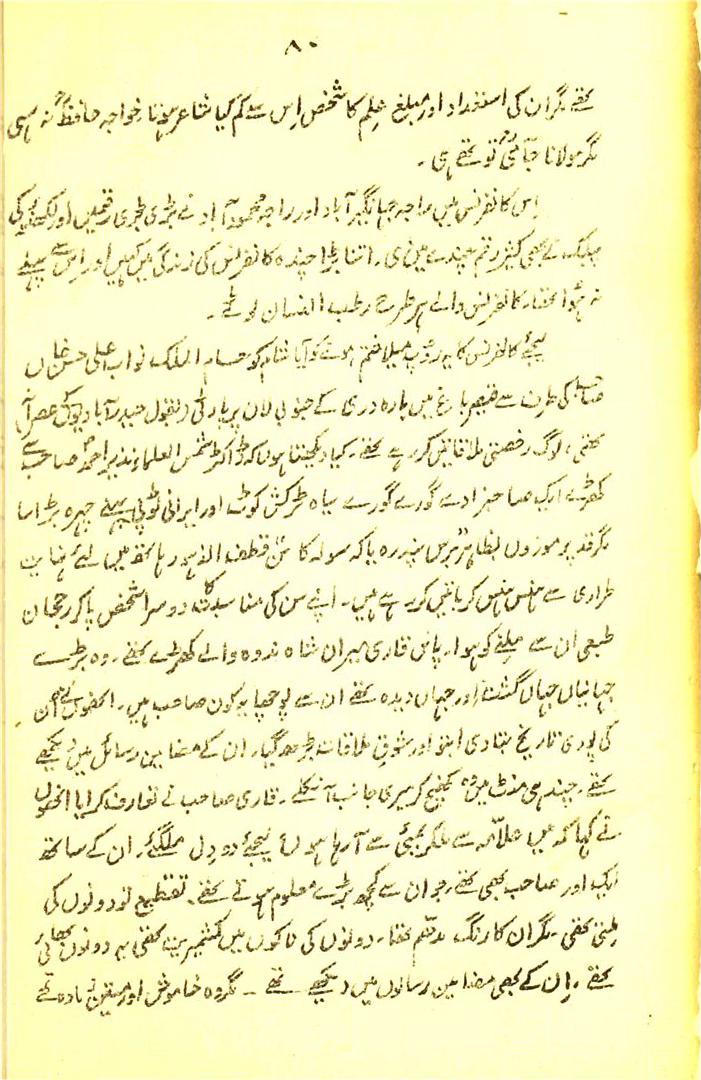 ۸۰
تھے مگر ان کی استعداد اور مبلغ علم کا شخص اِس سے کم کیا شاعر ہوتا۔ خواجہ حافظؒ نہ سہی
مگر مولانا جامیؒ تو تھے ہی۔
اِس کانفرنس میں راجہ جہانگیرآباد اور راجہ محمودآباد نے بڑی بڑی رقمیں اور لکھنؤ کی
پبلک نے بھی کثیر رقم چندے میں دی۔ اتنا بڑا چندہ کانفرنس کی زندگی میں کہیں اور اِس سے پہلے
نہ ہوا تھا، کانفرنس والے ہر طرح رطب اللسان لوٹے۔
لیجئے کانفرنس کا یہ رُوپ میلا ختم ہونے کو آیا شام کو حسام الملک نواب علی حسن خاں
صاحب کی طرف سے قیصر باغ میں بارہ دری کے جنوبی لان پر پارٹی (بقول حیدرآباد عصرانہ)
تھی، لوگ رخصتی ملاقاتیں کر رہے تھے۔ کیا دیکھتا ہوں کہ ڈاکٹر شمس العلماء نذیر احمد صاحب سے
کھڑے ایک صاحبزادے گورے گورے سیاہ ٹرکش کوٹ اور ایرانی ٹوپی پہنے چہرہ بڑا سا
مگر قد پر موزوں بظاہر برس پندرہ یا کہ سولہ کا سن ہاتھ میں لئے نہایت
طراری سے ہنس ہنس کر باتیں کر رہے ہیں۔ اپنے سن کی مناسبت کا دوسرا شخص پا کر رجحان
طبعی ان سے ملنے کو ہوا۔ پاس قاری میران شاہ ندوہ والے کھڑے تھے۔ وہ بڑے
جہانیاں جہاں گشت اور جہاں دیدہ تھے ان سے پوچھا یہ کون صاحب ہیں۔ انھوں نے اُن
کی پوری تاریخ بتا دی اور شوق ملاقات بڑھ گیا۔ ان کے مضامین رسائل میں دیکھے
تھے۔ چند ہی منٹ میں وہ کھنچ کر میری جانب آ نکلے۔ قاری صاحب نے تعارف کرایا انھوں
نے کہا کہ میں علامہ سے ملکر بمبئی سے آ رہا ہوں، لیجئے دو دِل مل گئے۔ ان کے ساتھ
ایک اور صاحب بھی تھے، جو ان سے کچھ بڑے معلوم ہوتے تھے۔ تقطیع تو دونوں کی
ملتی تھی۔ مگر ان کا رنگ مدھم تھا۔ دونوں کی ناکوں میں کشمیریت تھی یہ دونوں بھائی
تھے۔ اِن کے بھی مضامین رسالوں میں دیکھے تھے۔ مگر وہ خاموش اور سادہ تھے